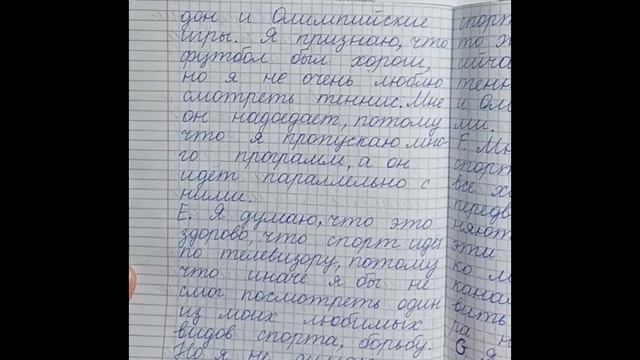 дон и Олимпийские
игры. Я признаю, что
футбол был хорош,
но я не очень люблю
смотреть теннис. Мне
он надоедает, потому
что я пропускаю мно-
го программ, а он
идет параллельно с
ними.
Е. Я думаю, что это
здорово, что спорт идет
по телевизору, потому
что иначе я бы не
смог посмотреть один
из моих любимых
видов спорта, борьбу.
Но я не
спорт
то э
сейча
тенн
и Ол
ми.
F. Мн
спорт
все х
передв
няют
эти
ко м
кана
вить
ра н
G Я